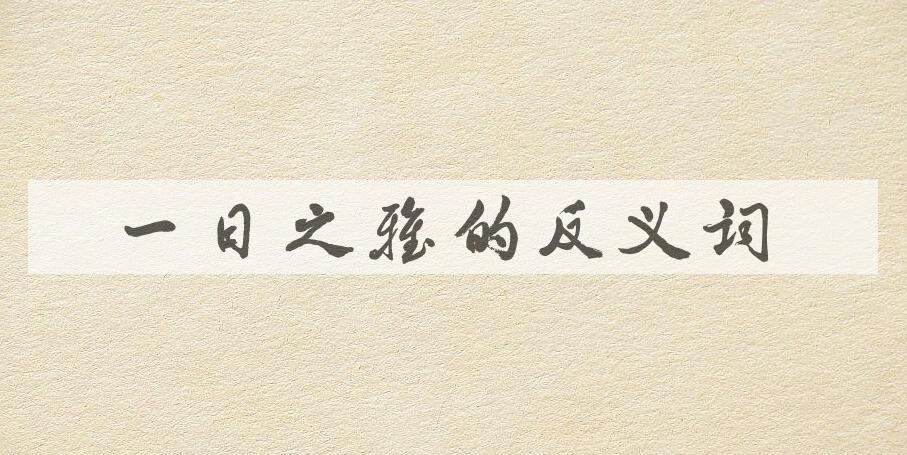 一日之雅的反义词